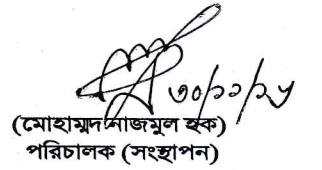 ৩০/১১/২৫
(মোহাম্মদ নাজমুল হক)
পরিচালক (সংস্থাপন)